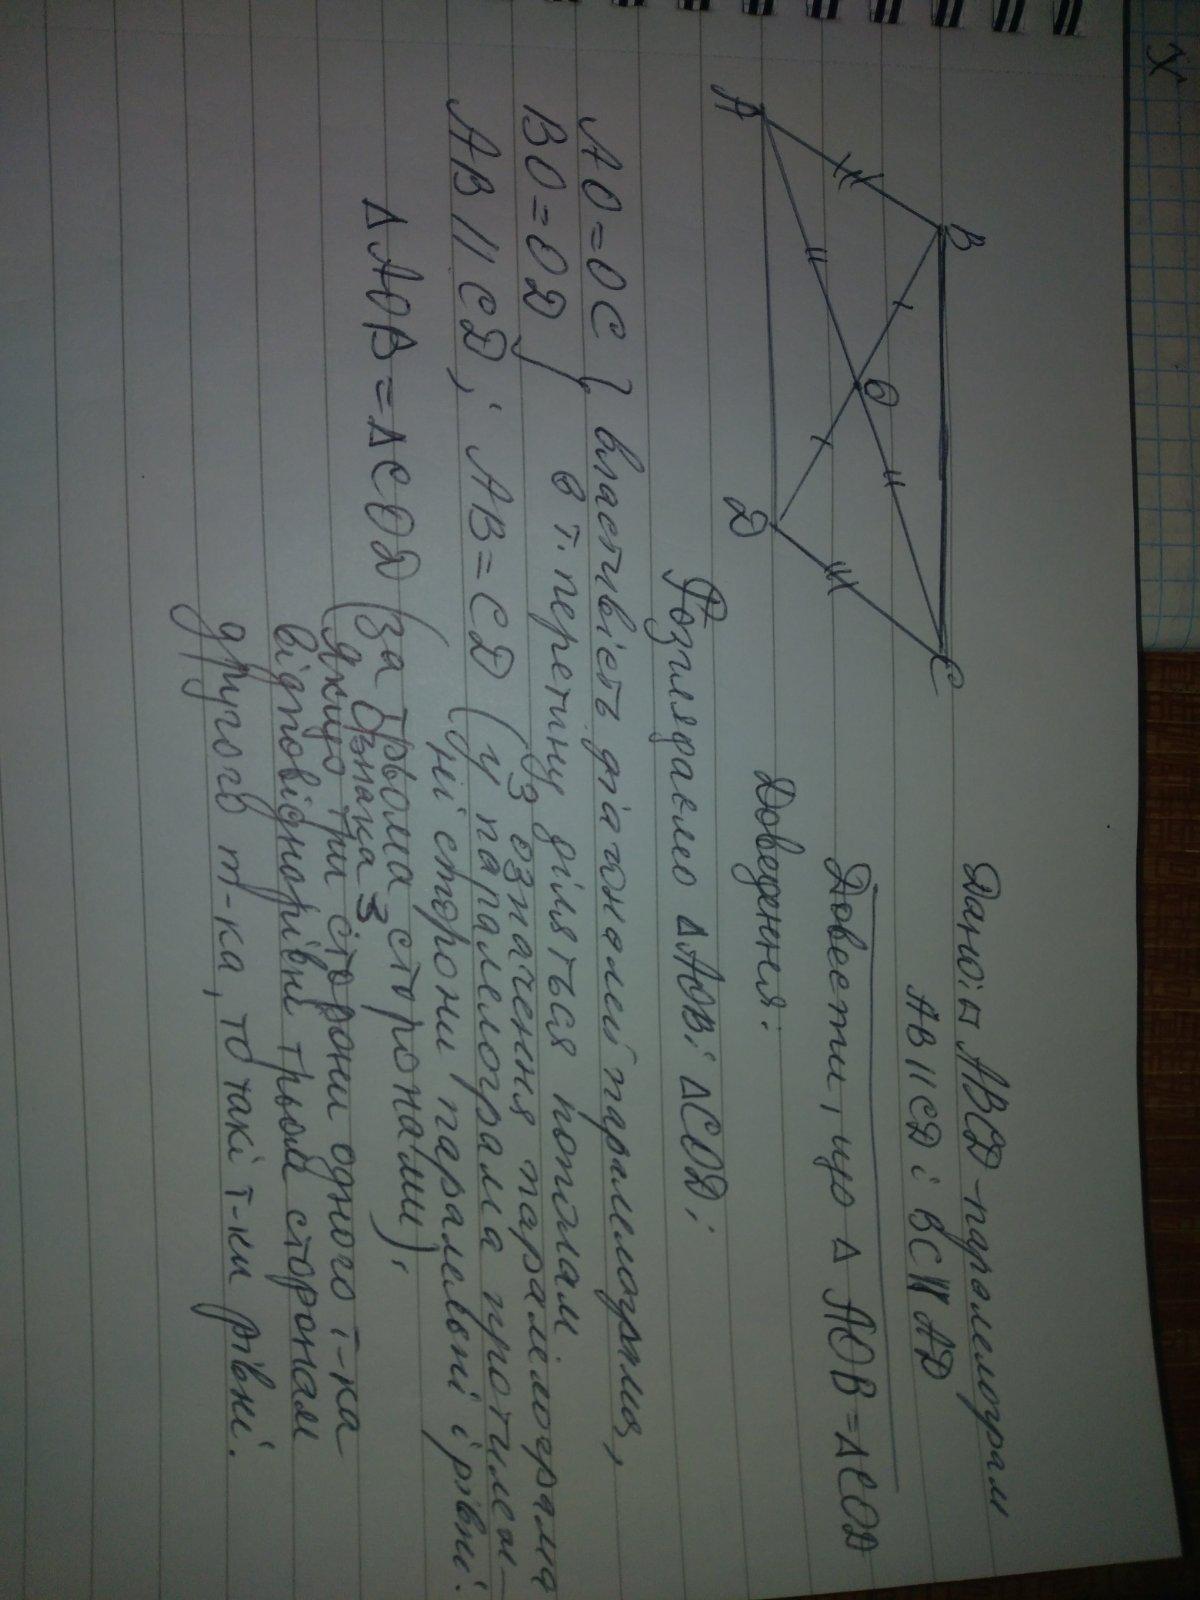 Дано: ▱ ABCD - паралелограм
AB || CD і BC || AD
Довести, що Δ AOB = Δ COD
Доведення.
B
C
O
A
D
Розглядаємо Δ AOB і Δ COD;
AO = OC } властивість діагоналей паралелограма,
BO = OD } в т. перетину діляться попілам
З означення паралелограма
AB || CD; AB = CD (у паралелограма протилеж-
ні сторони паралельні і рівні.
Δ AOB = Δ COD (за трьома сторонами),
Ознака 3
(якщо три сторони одного т-ка
відповіднорівні трьом сторонам
другого т-ка, то такі т-ки рівні.